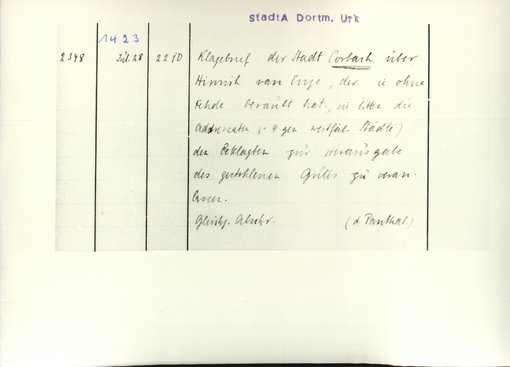 StadtA Dortm. Urk
1423
2348 Jul. 28 2210 Klagebrief der Stadt Corbach über
Hinrich van Enze, der sie ohne
Fehde beraubt hat, sie bitten die
Adressaten (- 9 gen. westfäl. Städte)
den Beklagten zur Herausgabe
des gestohlenen Gutes zu veran
lassen.
Gleichz. Abschr. (d. Panthal)